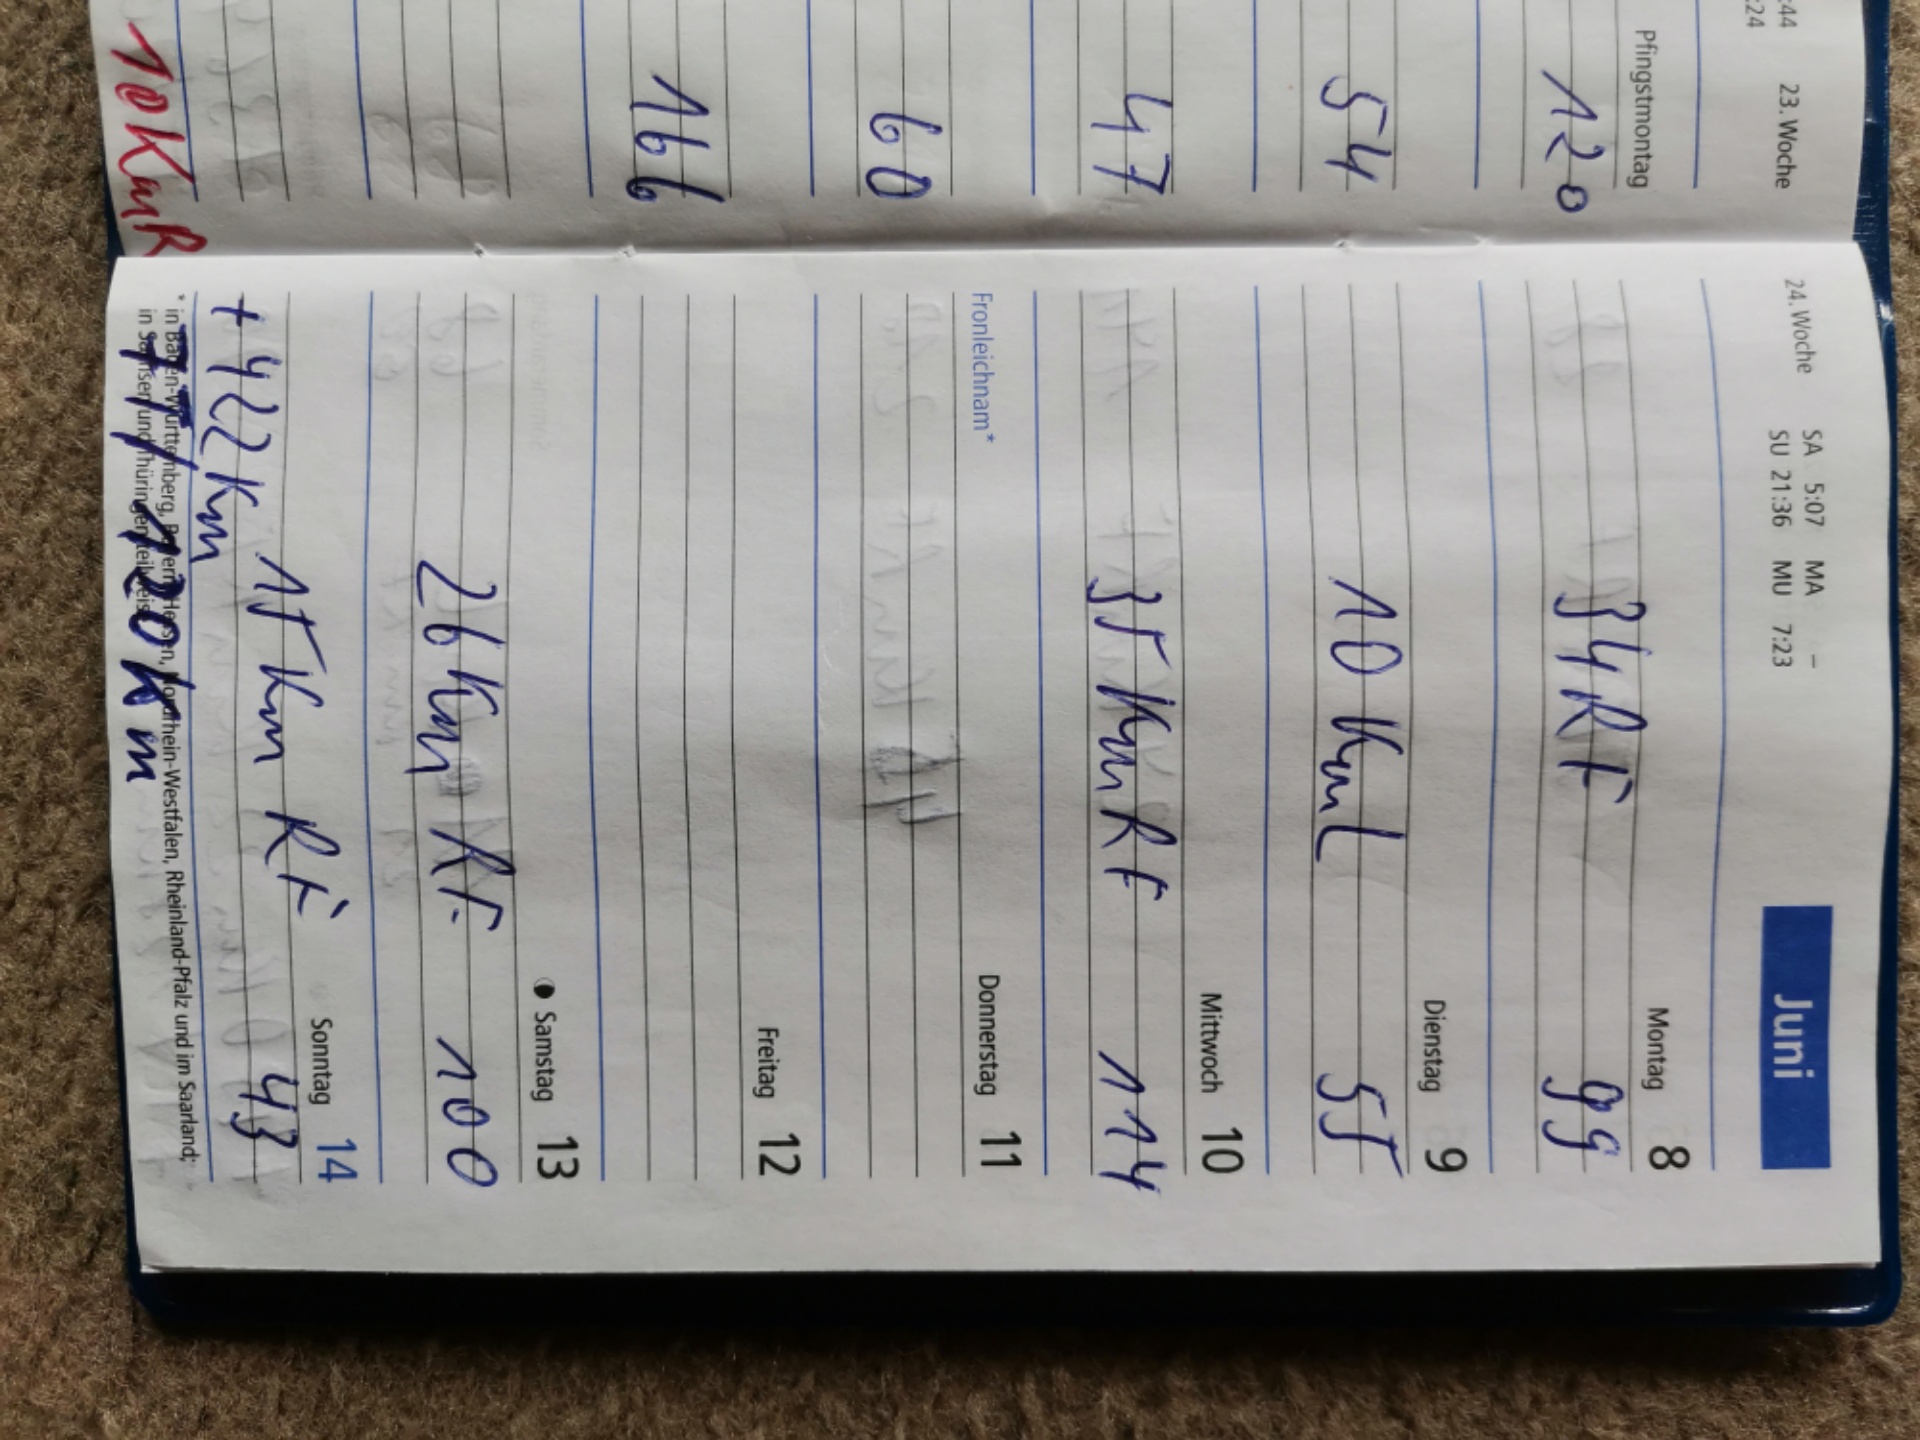 :44
:24
23. Woche
Pfingstmontag
120
54
47
60
166
10 Km R
24. Woche SA 5:07 MA –
SU 21:36 MU 7:23
Juni
Montag 8
34 RF 99
Dienstag 9
10 Km L 55
Mittwoch 10
35 Km RF 114
Fronleichnam* Donnerstag 11
Freitag 12
Samstag 13
26 Km RF. 100
Sonntag 14
15 Km RF 43
+422 Km
* in Baden-Württemberg, Bayern, Hessen, Nordrhein-Westfalen, Rheinland-Pfalz und im Saarland;
in Sachsen und Thüringen teilweise
77/120 Km